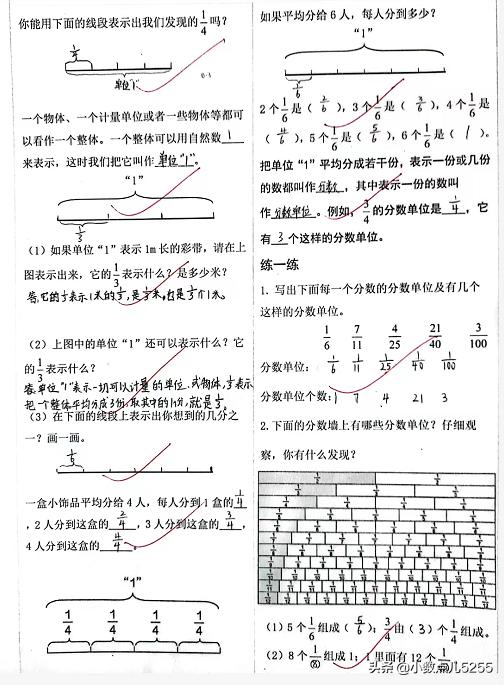 你能用下面的线段表示出我们发现的1/4吗？
1/4
单位"1"
一个物体、一个计量单位或者一些物体等都可
以看作一个整体。一个整体可以用自然数 1
来表示，这时我们把它叫作 单位"1"。
"1"
1/3
（1）如果单位"1"表示1m长的彩带，请在上
图表示出来，它的1/3表示什么？是多少米？
答:它的1/3表示1米的1/3,是1/3米,也是1/3个1米。
（2）上图中的单位"1"还可以表示什么？它
的1/3表示什么？
答:单位"1"表示一切可以计量的单位或物体,1/3表示
把一个整体平均分成3份,取其中的1份,就是1/3。
（3）在下面的线段上表示出你想到的几分之
一？画一画。
一盒小饰品平均分给4人，每人分到1盒的1/4
，2人分到这盒的2/4，3人分到这盒的3/4，
4人分到这盒的4/4。
"1"
1/4 1/4 1/4 1/4
如果平均分给6人，每人分到多少？
"1"
1/6
2个1/6是（2/6），3个1/6是（3/6），4个1/6是
（4/6），5个1/6是（5/6），6个1/6是（1）。
把单位"1"平均分成若干份，表示一份或几份
的数都叫作 分数，其中表示一份的数叫
作 分数单位。例如，3/4的分数单位是 1/4，它
有 3 个这样的分数单位。
练一练
1. 写出下面每一个分数的分数单位及有几个
这样的分数单位。
1/6 7/11 4/25 21/40 3/100
分数单位：1/6 1/11 1/25 1/40 1/100
分数单位个数：1 7 4 21 3
2.下面的分数墙上有哪些分数单位？仔细观
察，你有什么发现？
（1）5个1/6组成（5/6）；3/4由（3）个1/4组成。
（2）8个1/⑧组成1；1里面有12个
头条 @小数点儿5255